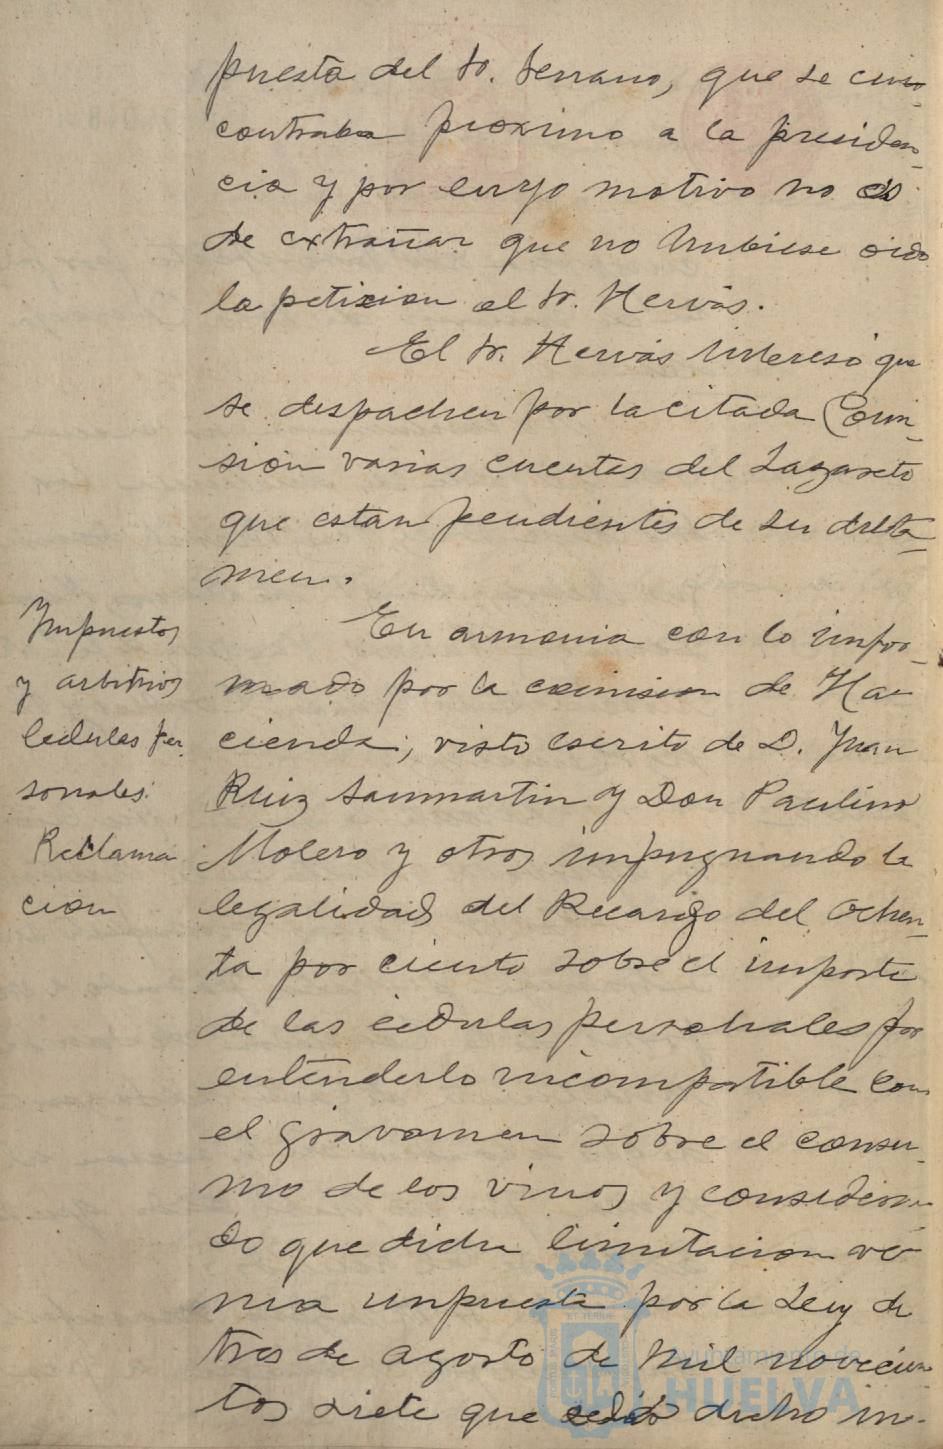 puesta del Sr. Serrano, que se en-
contraba proximo a la presiden-
cia y por cuyo motivo no es
de extrañar que no hubiese oido
la peticion al Sr. Hervás.
El Sr. Hervás interesó que
se despachen por la citada Comi-
sión varias cuentas del Lazareto
que estan pendientes de su dicta-
men.
Impuestos
y arbitrios
Cedulas per
sonales.
Reclama
cion
En armonia con lo infor-
mado por la comision de Ha-
cienda; visto escrito de D. Juan
Ruiz Sanmartin y Don Paulino
Molero y otros impugnando la
legalidad del Recargo del Ochen-
ta por ciento sobre el importe
de las cedulas personales por
entenderlo incompatible con
el gravamen sobre el consu-
mo de los vinos y consideran-
do que dicha limitacion ve-
nia impuesta por la Ley de
tres de agosto de mil novecien-
tos siete que dicho im-
Ayuntamiento de
HUELVA